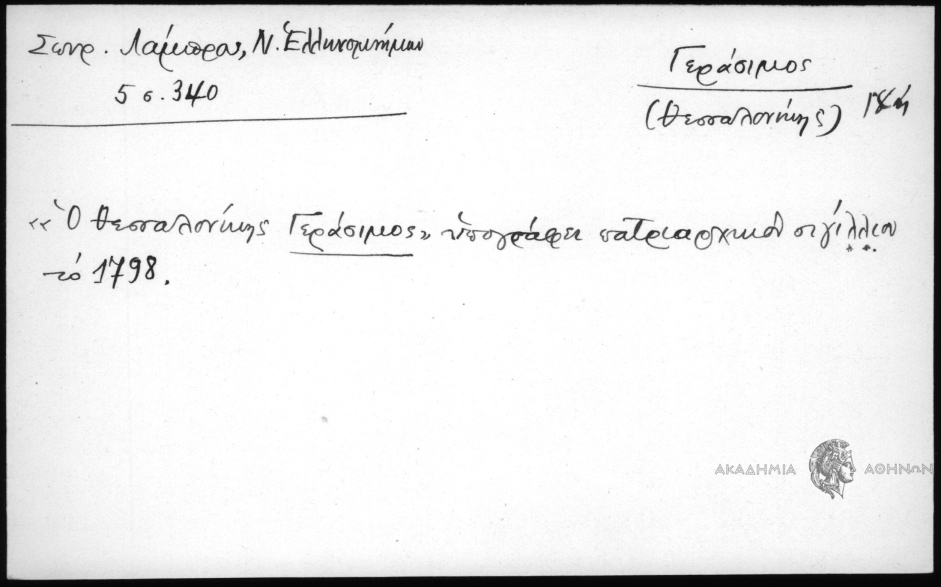 Σπυρ. Λάμπρου, Ν. Ἑλληνομνήμων
5 σ. 340
Γεράσιμος
(Θεσσαλονίκης)
«Ὁ Θεσσαλονίκης Γεράσιμος» ὑπογράφει πατριαρχικὸν σιγίλλιον
τό 1798.
ΑΚΑΔΗΜΙΑ ΑΘΗΝΩΝ